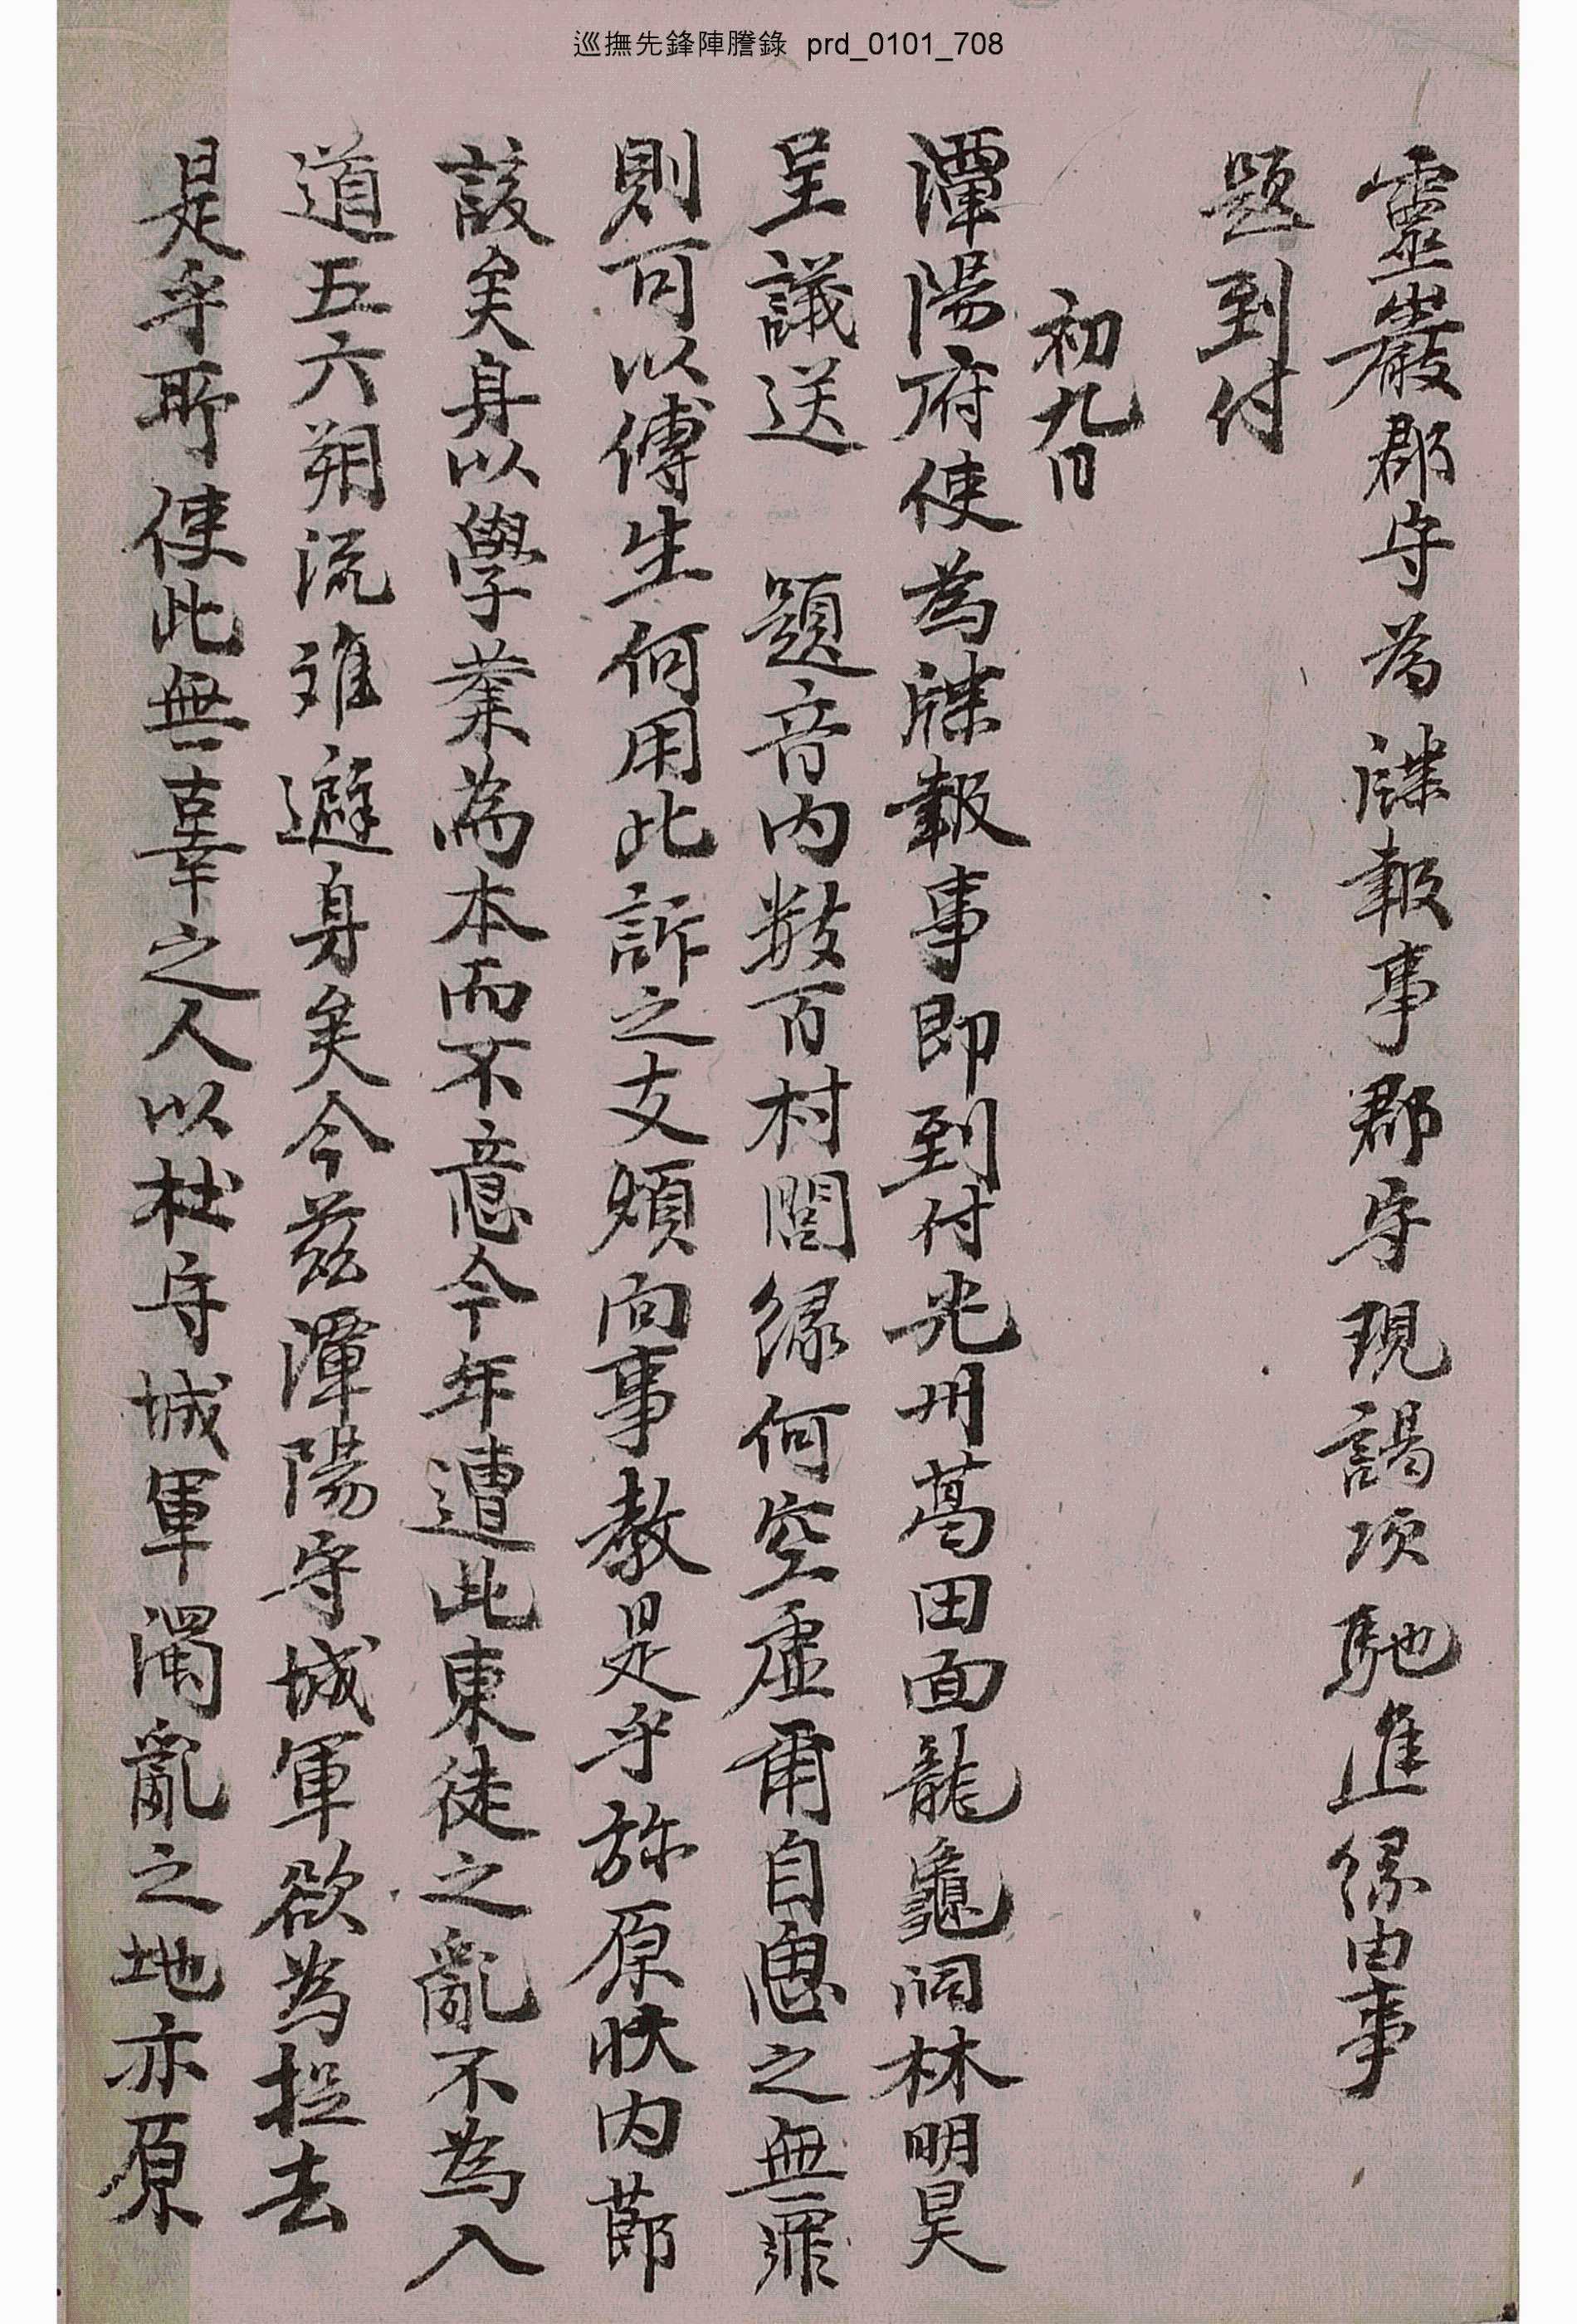 巡撫先鋒陣謄錄 prd_0101_708
靈巖郡守為牒報事郡守現謁次馳進緣由事
題到付
初九日
潭陽府使為牒報事即到付光州葛田面龍龜洞林明昊
呈議送 題音内數百村閭緣何空虛甫自恖之無罪
則可以傅生何用此訴之支煩向事教是乎旀原狀内節
該矣身以學業為本而不意今年遭此東徒之亂不為入
道五六朔流難避身矣今玆潭陽守城軍欲為捉去
是乎所使此無辜之人以杜守城軍濁亂之地亦原